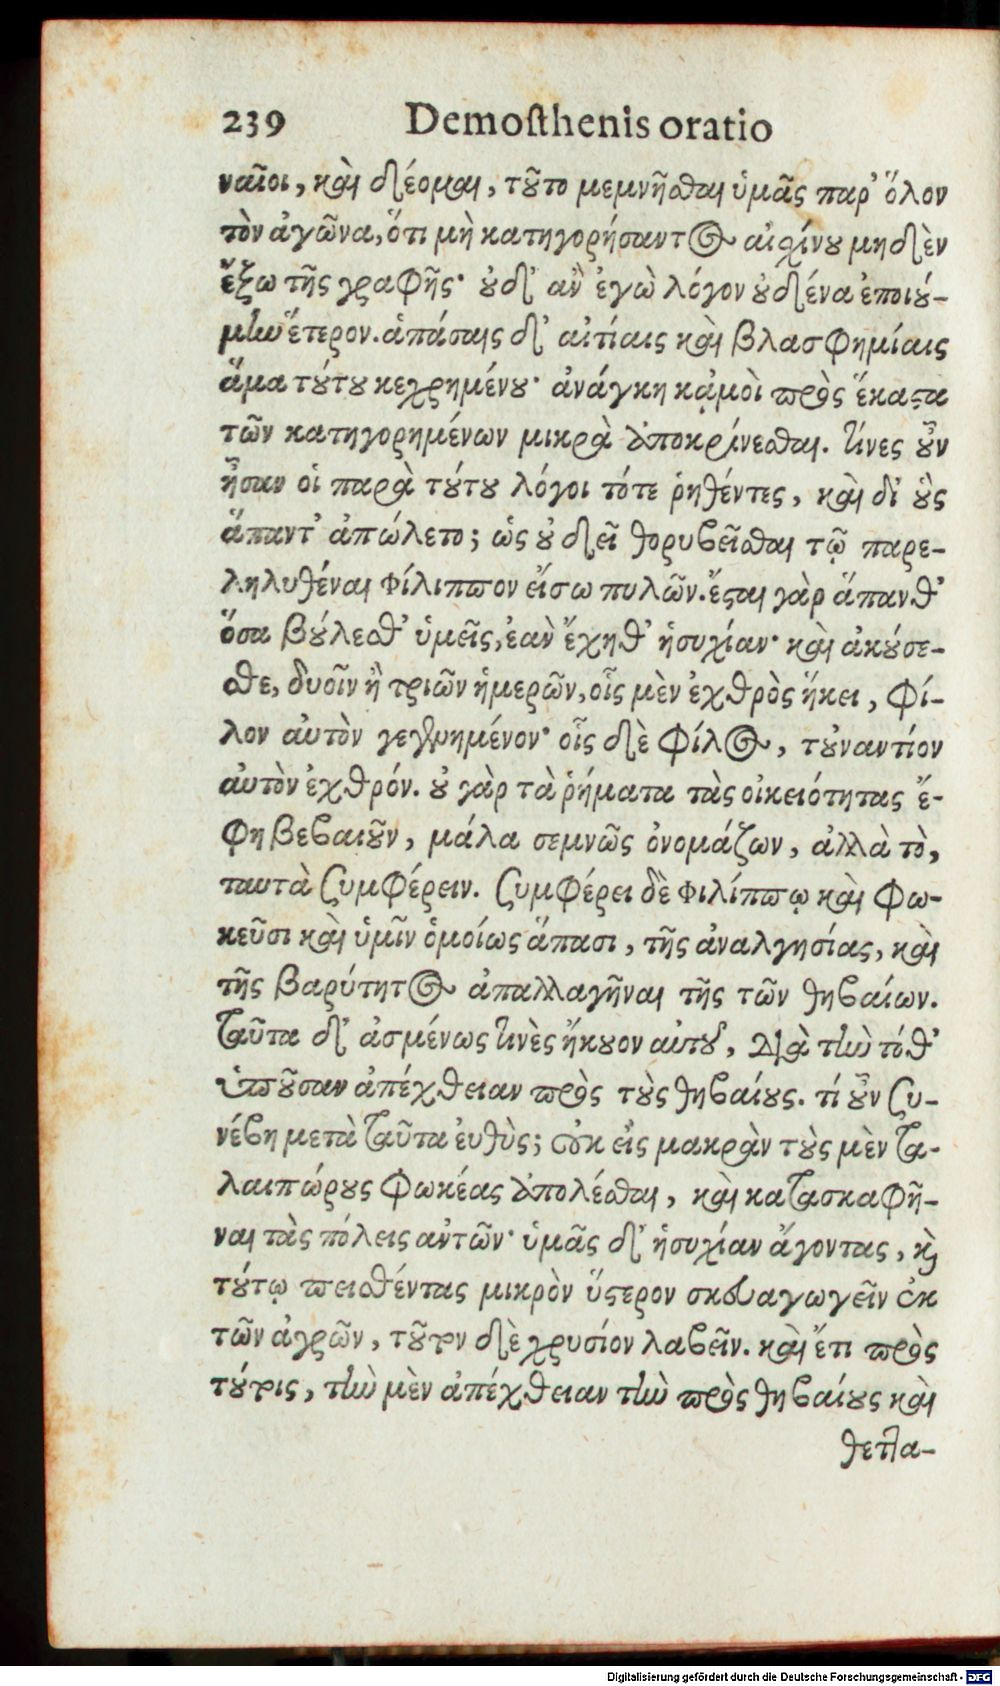 239 Demosthenis oratio
ναῖοι, καὶ δέομαι, τοῦτο μεμνῆσθαι ὑμᾶς παρ’ ὅλον
τὸν ἀγῶνα, ὅτι μὴ κατηγορήσαντος αἰσχίνου μηδὲν
ἔξω τῆς γραφῆς· οὐδ’ ἂν ἐγὼ λόγον οὐδένα ἐποιού-
μην ἕτερον. ἁπάσαις δ’ αἰτίαις καὶ βλασφημίαις
ἅμα τούτου κεχρημένου· ἀνάγκη κᾀμοὶ πρὸς ἕκαστα
τῶν κατηγορημένων μικρὰ ἀποκρίνεσθαι. τίνες οὖν
ἦσαν οἱ παρὰ τούτου λόγοι τότε ῥηθέντες, καὶ δι’ οὓς
ἅπαντ’ ἀπώλετο; ὡς οὐ δεῖ θορυβεῖσθαι τῷ παρε-
ληλυθέναι Φίλιππον εἴσω πυλῶν. ἔσται γὰρ ἅπανθ’
ὅσα βούλεσθ’ ὑμεῖς, ἐὰν ἔχηθ’ ἡσυχίαν· καὶ ἀκούσε-
σθε, δυοῖν ἢ τριῶν ἡμερῶν, οἷς μὲν ἐχθρὸς ἥκει, φί-
λον αὐτὸν γεγενημένον· οἷς δὲ φίλος, τοὐναντίον
αὐτὸν ἐχθρόν. οὐ γὰρ τὰ ῥήματα τὰς οἰκειότητας ἔ-
φη βεβαιοῦν, μάλα σεμνῶς ὀνομάζων, ἀλλὰ τὸ,
ταυτὰ συμφέρειν. συμφέρει δὲ Φιλίππῳ καὶ Φω-
κεῦσι καὶ ὑμῖν ὁμοίως ἅπασι, τῆς ἀναλγησίας, καὶ
τῆς βαρύτητος ἀπαλλαγῆναι τῆς τῶν θηβαίων.
ταῦτα δ’ ἀσμένως τινὲς ἤκουον αὐτοῦ, διὰ τὴν τόθ’
ὑποῦσαν ἀπέχθειαν πρὸς τοὺς θηβαίους. τί οὖν συ-
νέβη μετὰ ταῦτα εὐθὺς; οὐκ εἰς μακρὰν τοὺς μὲν τα-
λαιπώρους Φωκέας ἀπολέσθαι, καὶ κατασκαφῆ-
ναι τὰς πόλεις αὐτῶν· ὑμᾶς δ’ ἡσυχίαν ἄγοντας, καὶ
τούτῳ πεισθέντας μικρὸν ὕστερον σκευαγωγεῖν ἐκ
τῶν ἀγρῶν, τοῦτον δὲ χρυσίον λαβεῖν. καὶ ἔτι πρὸς
τούτοις, τὴν μὲν ἀπέχθειαν τὴν πρὸς θηβαίους καὶ
θετλα-
Digitalisierung gefördert durch die Deutsche Forschungsgemeinschaft - DFG